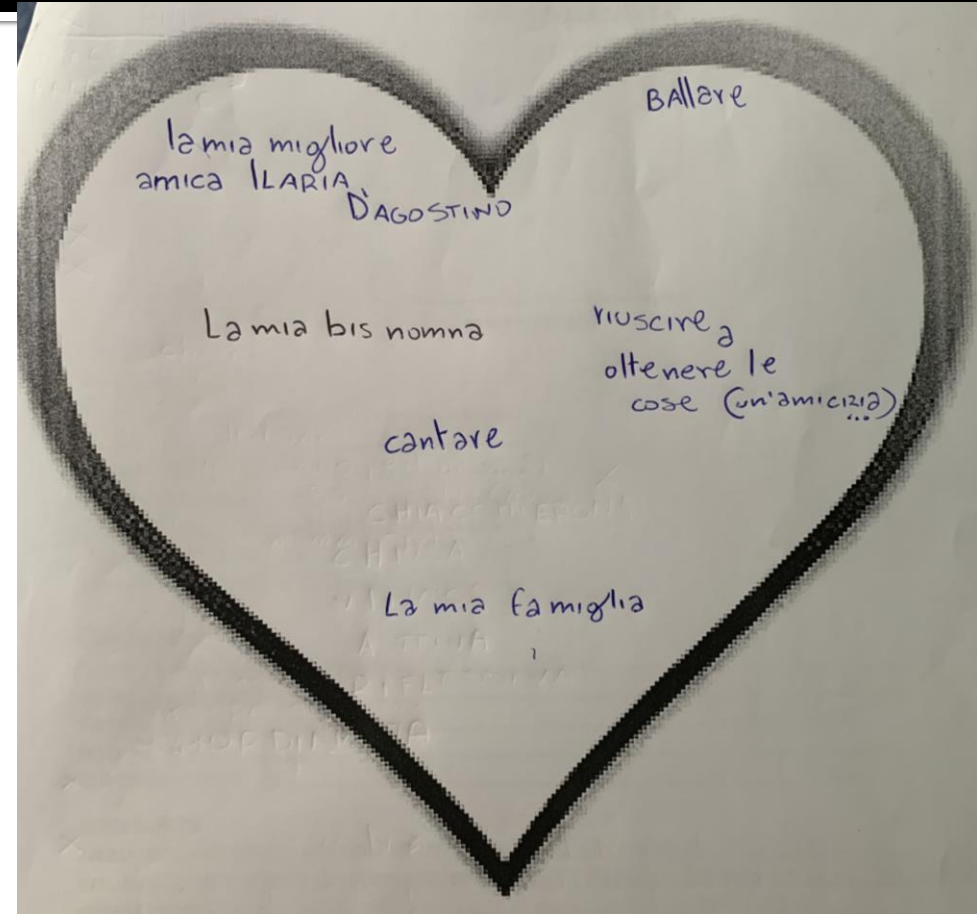 BAllare
la mia migliore
amica ILARIA
D'AGOSTINO
La mia bis nomna
riuscire a
oltenere le
cose (un'amicizia)
cantare
La mia famiglia
ATTIVA